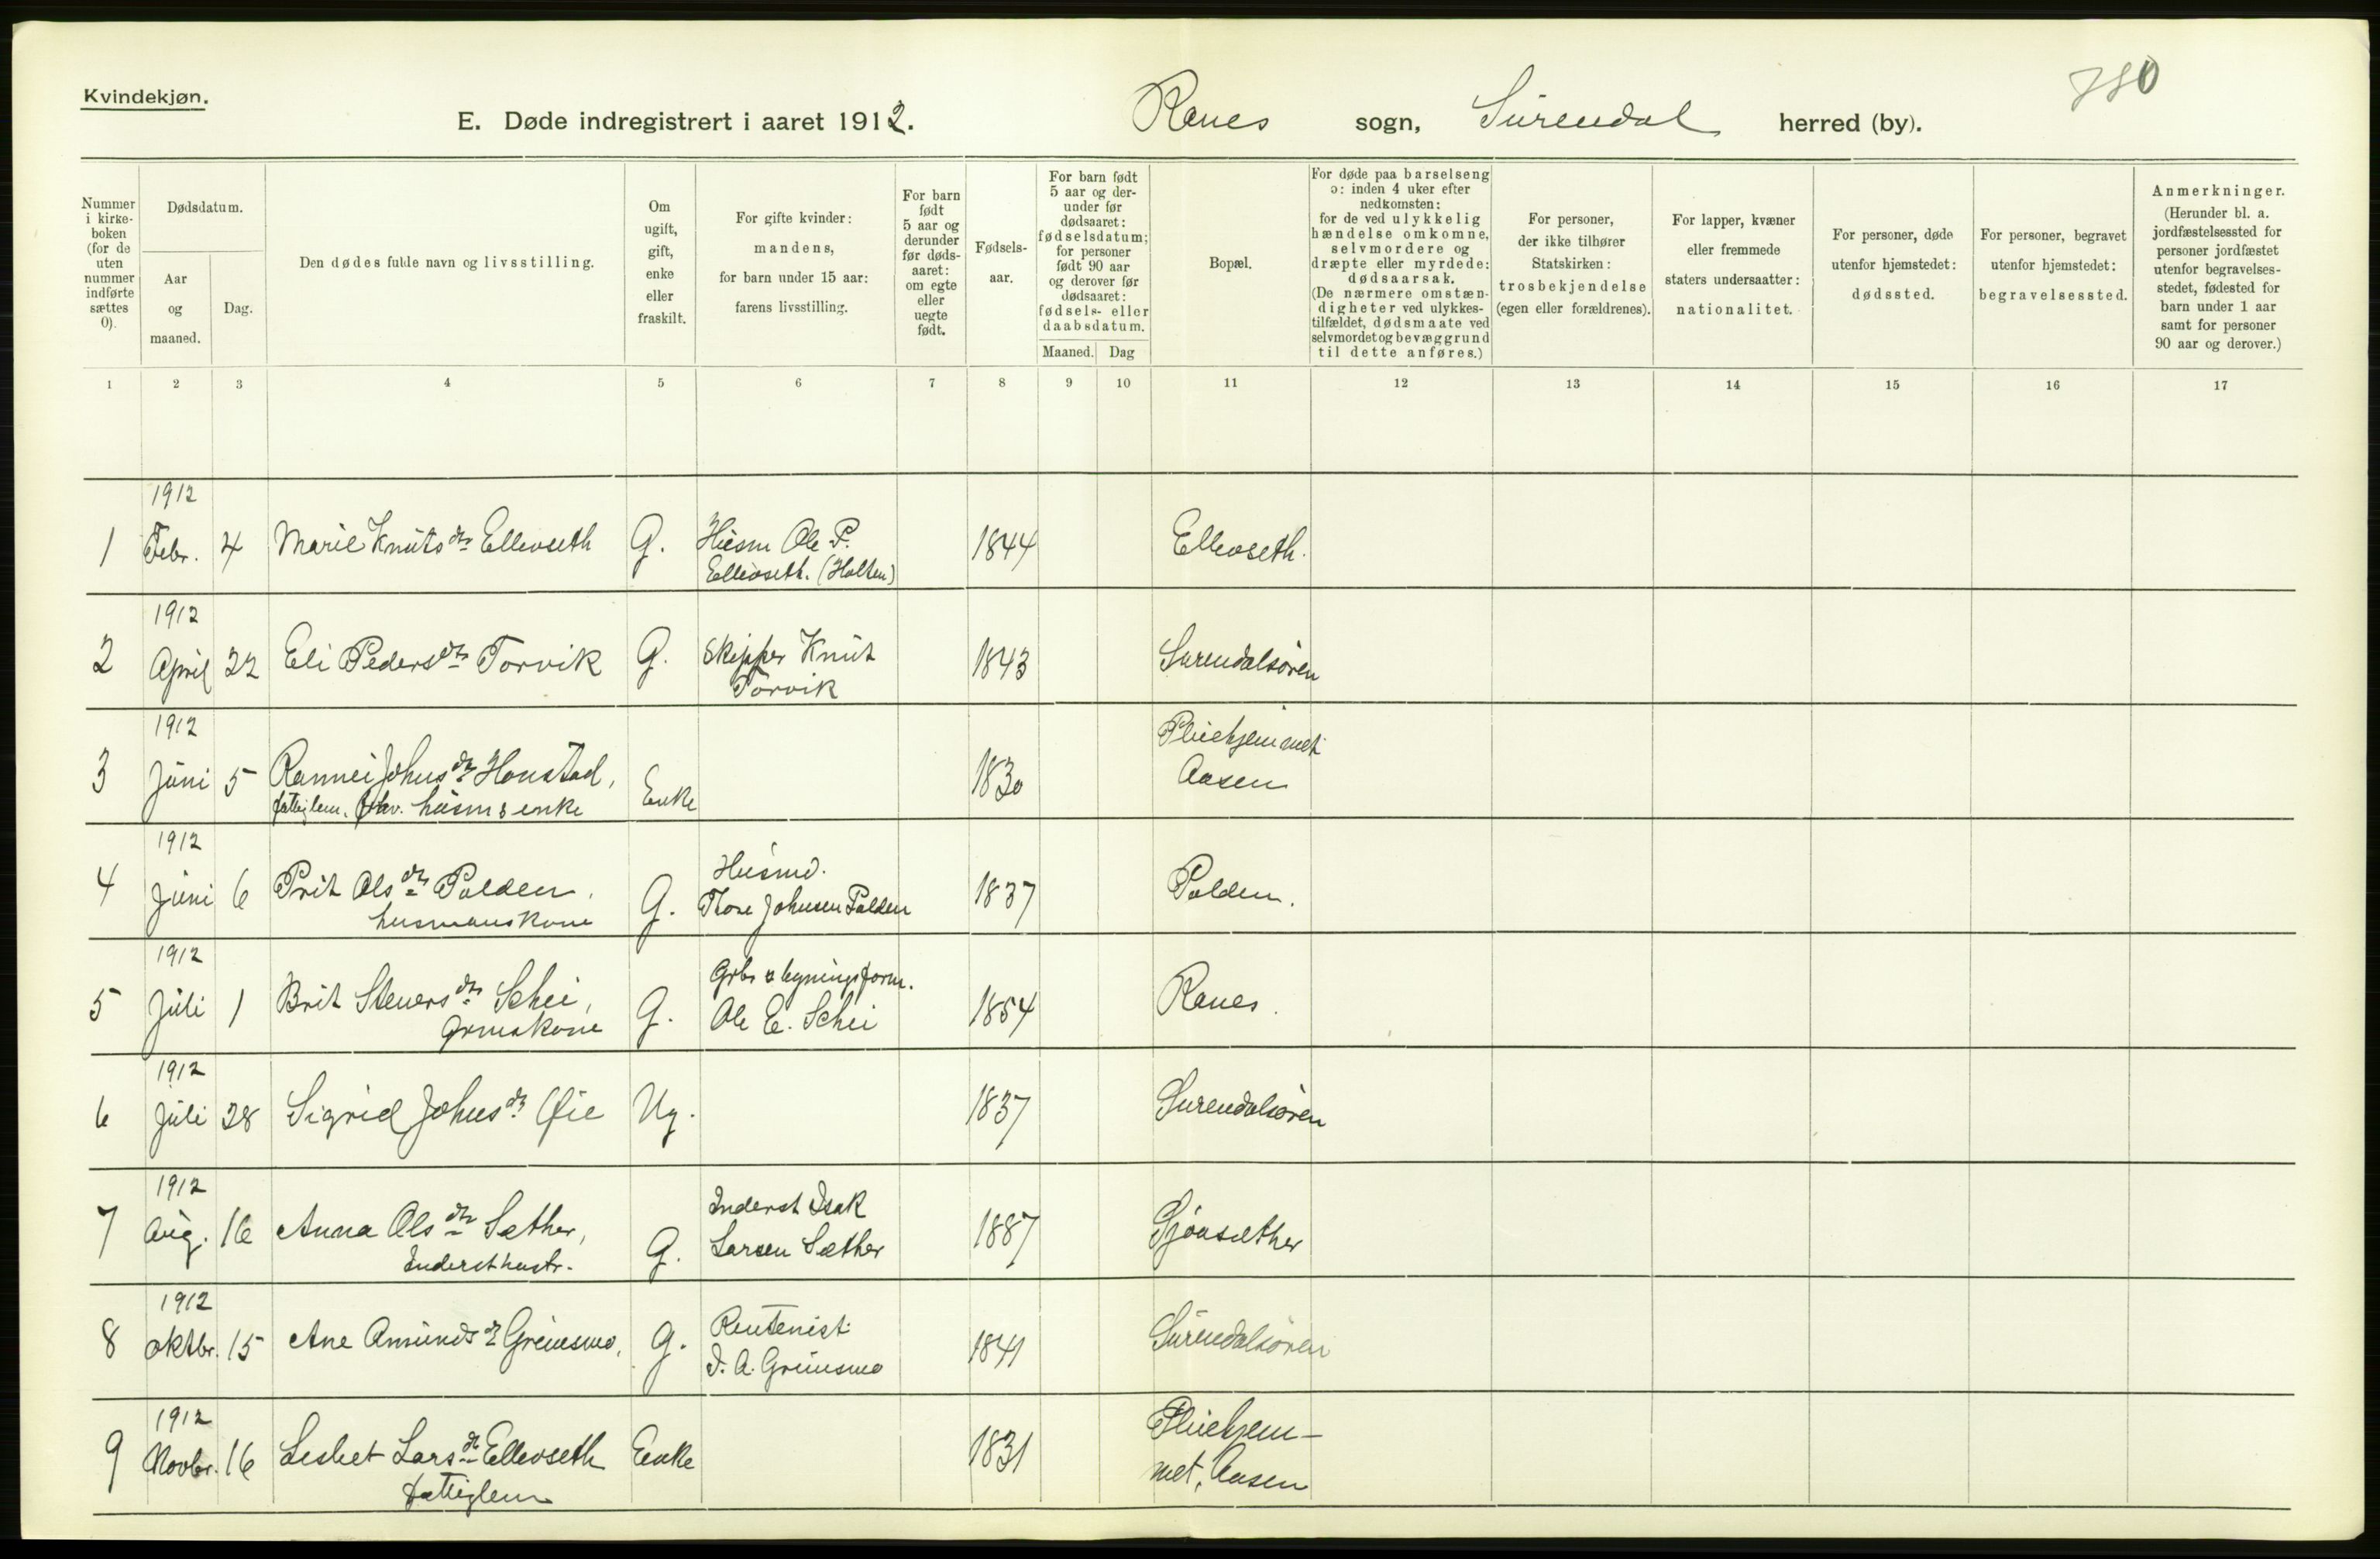 Kvindekjøn.
E. Døde indregistrert i aaret 1912. Ranes sogn, Surendal herred (by). 780
Nummer i kirke-boken (for de uten nummer indførte sættes 0).
Dødsdatum.
Aar og maaned.
Dag.
Den dødes fulde navn og livsstilling.
Om ugift, gift, enke eller fraskilt.
For gifte kvinder: mandens, for barn under 15 aar: farens livsstilling.
For barn født 5 aar og derunder før døds-aaret: om egte eller uegte født.
Fødsels-aar.
For barn født 5 aar og der-under før dødsaaret: fødselsdatum; for personer født 90 aar og derover før dødsaaret: fødsels- eller daabsdatum.
Maaned. Dag
Bopæl.
For døde paa barselseng ɔ: inden 4 uker efter nedkomsten: for de ved ulykkelig hændelse omkomne, selvmordere og dræpte eller myrdede: dødsaarsak. (De nærmere omstæn-digheter ved ulykkes-tilfældet, dødsmaate ved selvmordet og bevæggrund til dette anføres.)
For personer, der ikke tilhører Statskirken: trosbekjendelse (egen eller forældrenes).
For lapper, kvæner eller fremmede staters undersaatter: nationalitet.
For personer, døde utenfor hjemstedet: dødssted.
For personer, begravet utenfor hjemstedet: begravelsessted.
Anmerkninger. (Herunder bl. a. jordfæstelsessted for personer jordfæstet utenfor begravelses-stedet, fødested for barn under 1 aar samt for personer 90 aar og derover.)
1 2 3 4 5 6 7 8 9 10 11 12 13 14 15 16 17
1912
1 Febr. 4 Marie Knutsdtr Ellevseth G. Husm Ole P. 1844 Ellevseth.
Ellevseth. (Holten)
1912
2 April 22 Eli Pedersdtr Torvik G. Skipper Knut 1843 Surendalsøren
Torvik
1912 Pleiehjemmet
3 Juni 5 Rannei Johnsdtr Honstad, Enke 1830 Aasen
fattiglem. husms enke
1912 Husmd.
4 Juni 6 Prit Olsdtr Polden, G. Thore Johnsen Polden 1837 Polden.
husmanskone
1912 Grbr & bygningsform.
5 Juli 1 Brit Steners dtr Schei, G. Ole E. Schei 1854 Ranes.
Grmakone
1912
6 Juli 28 Sigrid Johnsdtr Øie Ug. 1837 Surendalsøren
1912 Inderst Isak
7 Aug. 16 Anna Olsdtr Sæther, G. Larsen Sæther 1887 Gjøasæther
Inderst hustr.
1912 Rentenist
8 oktbr. 15 Ane Amundsdtr Grimsmo, G. I. A. Grimsmo 1841 Surendalsøren
1912 Pleiehjem-
9 Novbr. 16 Lesbet Larsdtr Ellevseth Enke 1831 met, Aasen
fattiglem